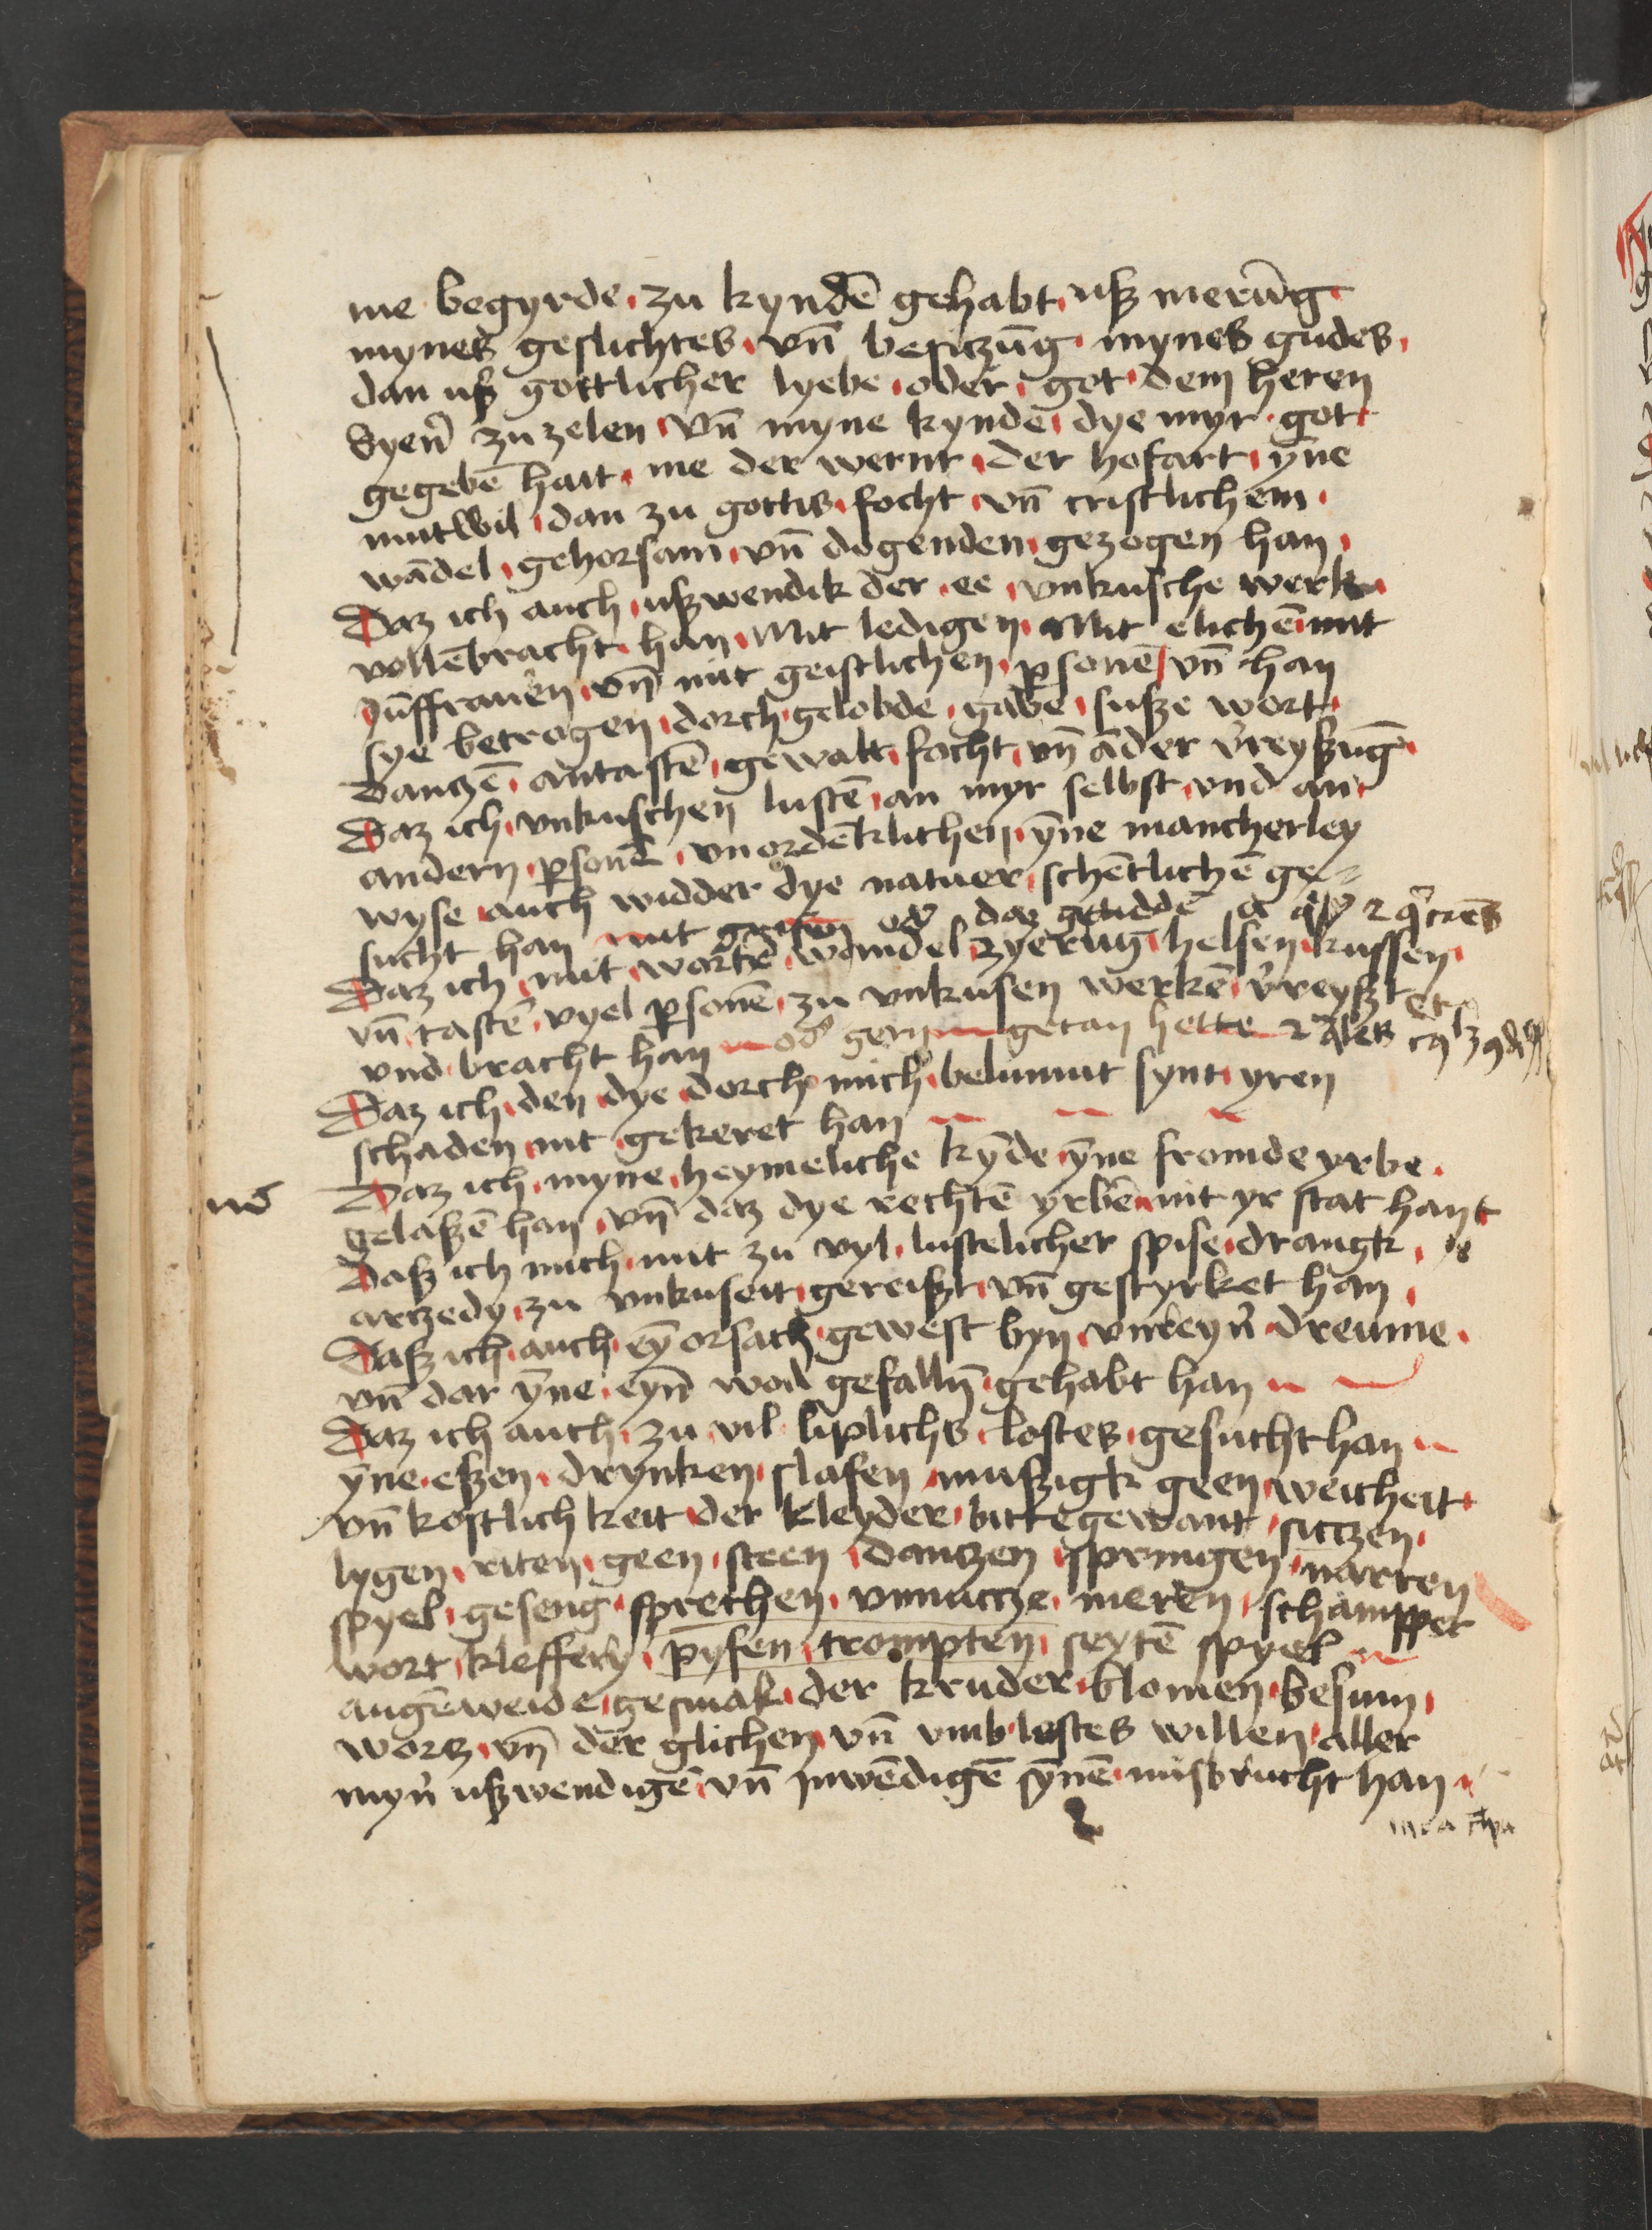 me begyrde zu kyndē gehabt uß merūg
mynes geslichtes vn̄ besiczūg mynes gudes
dan uß gottlicher lyebe oder got dem heren
syen̄ zu zelen vn̄ myne kynde dye myr got
gegebē hait me der wernt der hofart yne
mutwil dan zu gottis focht vn̄ cristlichem
wādel gehorsam vn̄ dogenden gezogen han
Daz ich auch ußwendik der ee vnkusche werk
vollēbracht han Mit ledigen Mit elichē mit
jūffrauen vn̄ mit geistlichen psonē vn̄ han
sye betrogen dorch gelobde gabe suße wort
dantzē antastē gewalt focht vn̄ āder v̄reyßūg
Daz ich vnkuschen lustē an myr selbst vnd an
andern psonē vnordēklichen yne mancherley
wyse auch widder dye natuer schētlichē ge-
sucht han mit od daz geliddē
Daz ich mit wortē wandel zyerūg helsen kussen
vn̄ tastē vyel psonē zu vnkusen werkē v̄reyßt
vnd bracht han od gern getan hette
Daz ich den dye dorch mich belumut synt yren
schaden nit gekeret han
Daz ich myne heymeliche kȳde yne fromde yrbe
gelaßē han vn̄ daz dye rechtē yrbē nit yr stat hant
Daß ich mich mit zu vyl lustelicher spise drangk
arczedy zu vnkuseit gereißt vn̄ gestyrket han
Daß ich auch eȳ orsach gewest byn vnreyn̄ dreume
vn̄ dar yne eyn̄ wol gefalln̄ gehabt han
Daz ich auch zu vil liplichs lostes gesucht han
yne eßen drynken slafen mußigk geen weicheit
vn̄ kostlichkeit der kleyder bittegewant siczen
lygen riten geen steen dantzen springen narren
spyel geseng sprechen vnnucze meren schamper
wort klaffery pyfen trompten seytē spyel
augēweide gesmak der kruder blomen besum
worz vn̄ der glichen vn̄ vmb lustes willen aller
myn̄ ußwendigē vn̄ jnwēdigē synē misbrucht han
mea clpa